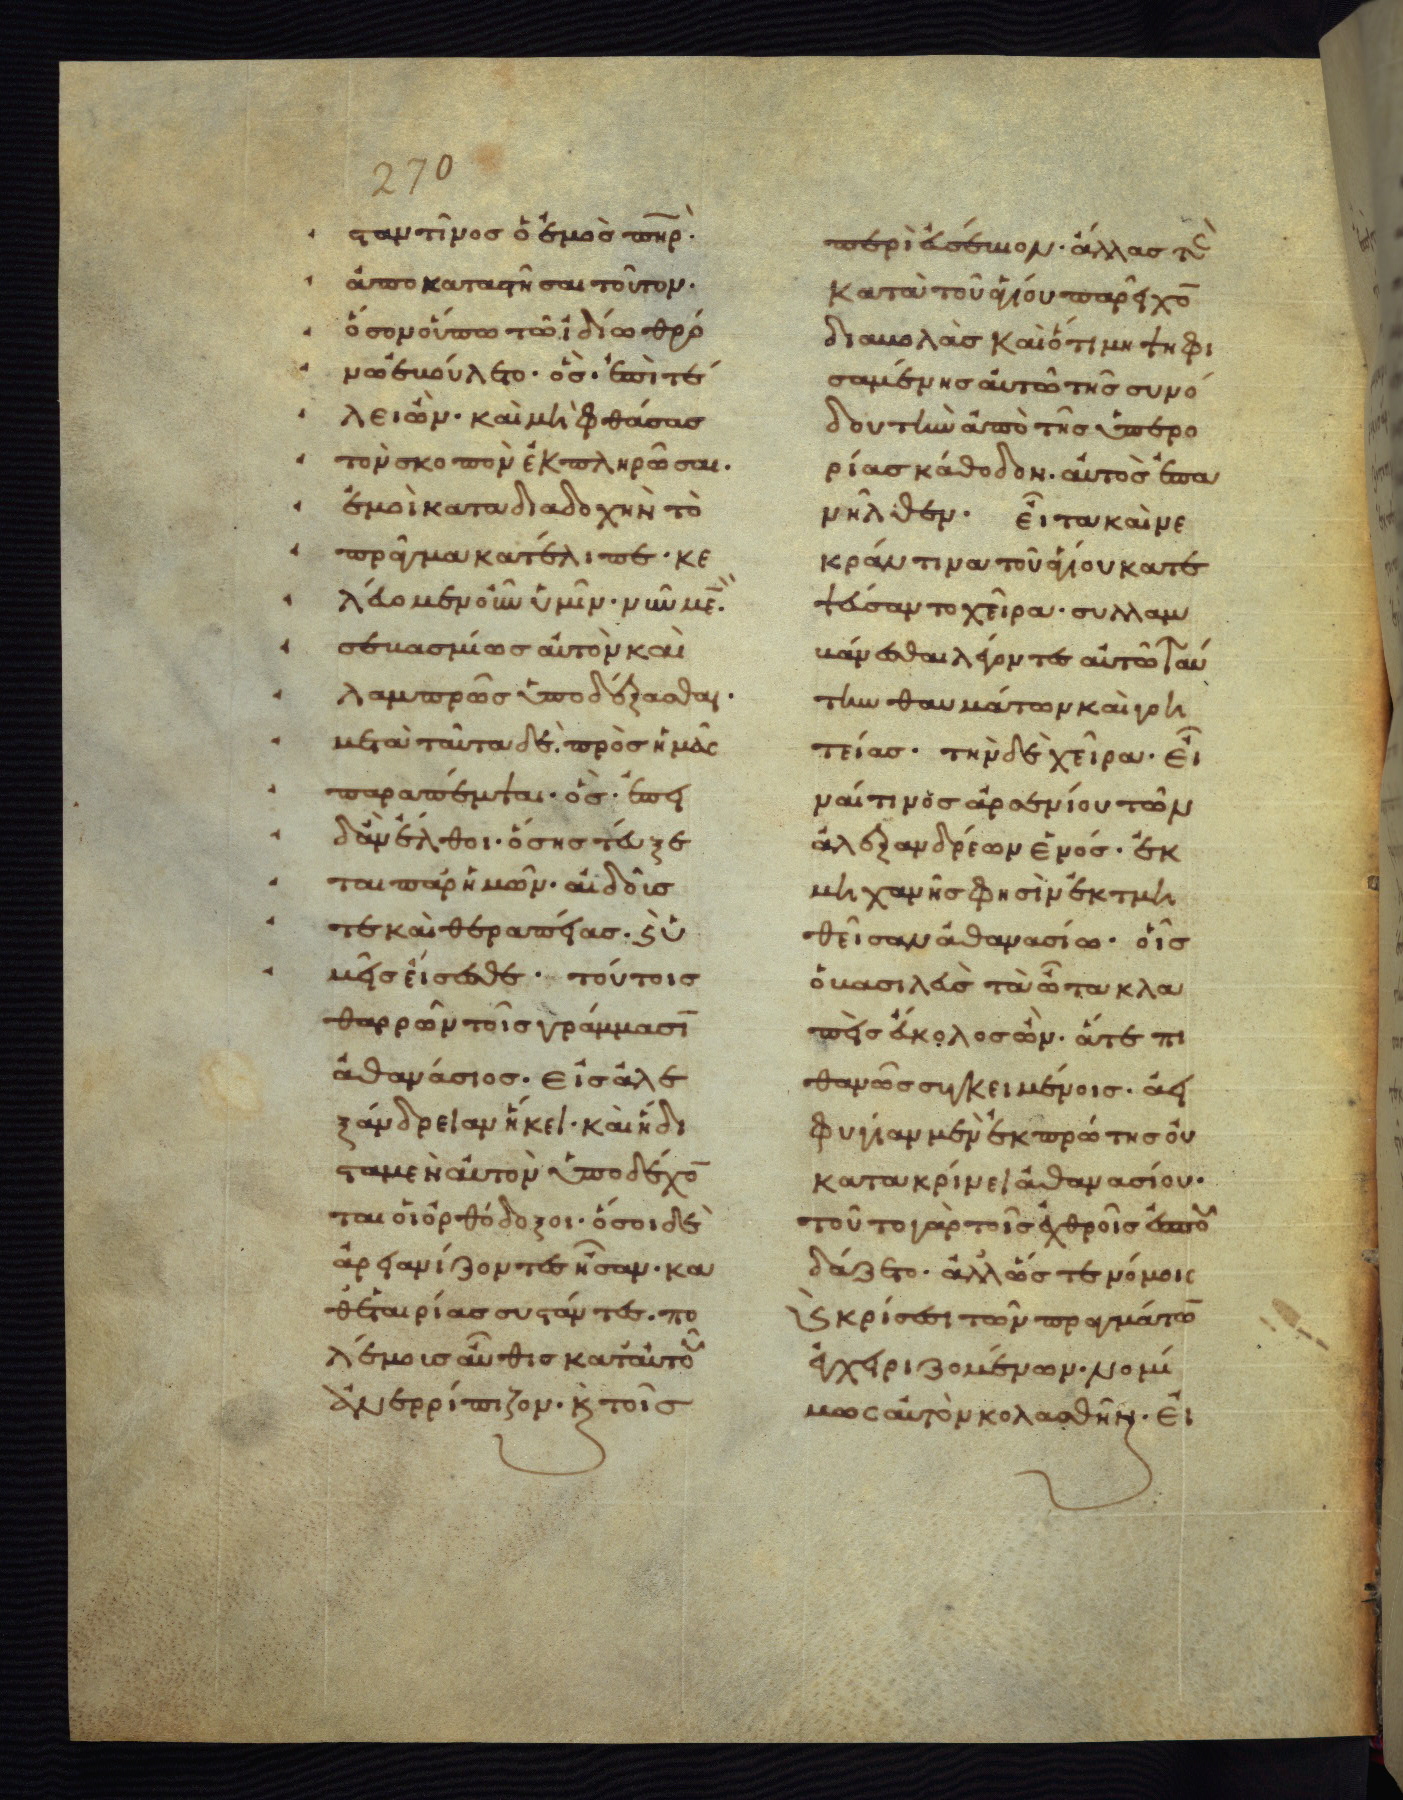 270
σταντῖνος ὁ ἐμὸς πη̅ρ̀·
ἀποκαταστῆσαι τοῦτον·
ὅσον οὔπω τῶ ἰδίω θρό
νω ἐβούλετο· ὃς· ἐπὶ τε
λειῶν· καὶ μὴ φθάσας
τὸν σκοπὸν ἐκπληρῶσαι·
ἐμοὶ κατα διαδοχὴν τὸ
πρᾶγμα κατέλιπε· κε
λεύομεν οὖν ὑμῖν· νῦν μὲ̅·
σεβασμίως αὐτὸν καὶ
λαμπρῶς ὑποδέξασθαι·
μετὰ ταῦτα δὲ, πρὸς ἡμᾶς
παραπέμψαι· ὃς· ἐπει
δὰν ἔλθοι· ὅσης τεύξε
ται παρ ἡμῶν· αἰδοῖς
τε καὶ θεραπείας· ϗ ὑ
μεῖς εἴσεσθε· τούτοις
θαρρῶν τοῖς γράμμασῑ
ἀθανάσιος· εἰς ἀλε
ξάνδρειαν ἥκει· καὶ ἥδι
στα μὲν αὐτὸν ὑποδέχο̅
ται οἱ ὀρθόδοξοι· ὅσοι δὲ
ἀρειανίζοντες ἦσαν· κα
θ ἑταιρίας συστάντες· πο
λέμοις αὖθις κατ αὐτοῦ
ἀνερρίπιζον· ϗ τοῖς
περὶ εὐσέβιον· ἄλλας τὲ
κατὰ τοῦ ἁγίου παρεῖχο̅
διαβολὰς καὶ ὅτι μὴ ψηφι
σαμένης αὐτῶ τῆς συνό
δου τὴν ἀπὸ τῆς ὑπερο
ρίας κάθοδον· αὐτὸς ἐπα
νῆλθεν· εἶτα καὶ νε
κράν τινα τοῦ ἁγίου κατε
ψεύσαντο χεῖρα· συλλαμ
βάνεσθαι λέγοντες αὐτῶ ταύ
την θαυμάτων καὶ γοη
τείας· τὴν δὲ χεῖρα· εἶ
ναί τινος ἀρσενίου τῶν
ἀλεξανδρέων ἑνός· ἐκ
μηχανῆς φησὶν ἐκτμη
θεῖσαν ἀθανασίω· οἷς
ὁ βασιλεὺς τὰ ὦτα κλα
πεὶς εὔκολος ὢν· ἅτε πι
θανῶς συγκειμένοις· ἀει
φυγίαν μὲν ἐκ πρώτης οὐ
κατακρίνει ἀθανασίου·
τοῦτο γὰρ τοῖς ἐχθροῖς ἐσπου
δάζετο· ἀλλ ὥς τε νόμοις
ϗ κρίσεσι τῶν πραγμάτω̅
ἐγχειριζομένων· νομί
μως αὐτὸν κολασθῆναι· εἰ